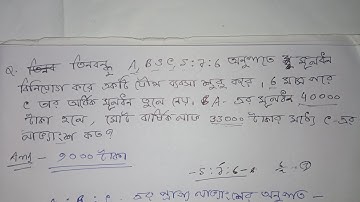 Q. তিনবন্ধু A, B ও C, 5:7:6 অনুপাতে মূলধন
বিনিয়োগ করে একটি যৌথ ব্যবসা শুরু করে, 6 মাস পরে
C তার অর্ধেক মূলধন তুলে নেয়, A-এর মূলধন 40000
টাকা হলে, মোট বার্ষিক লাভ 33000 টাকার মধ্যে C-এর
লাভ্যাংশ কত?
Ans - 9000 টাকা
-5:7:6-
A : B : C এর লাভ্যাংশের অনুপাত -